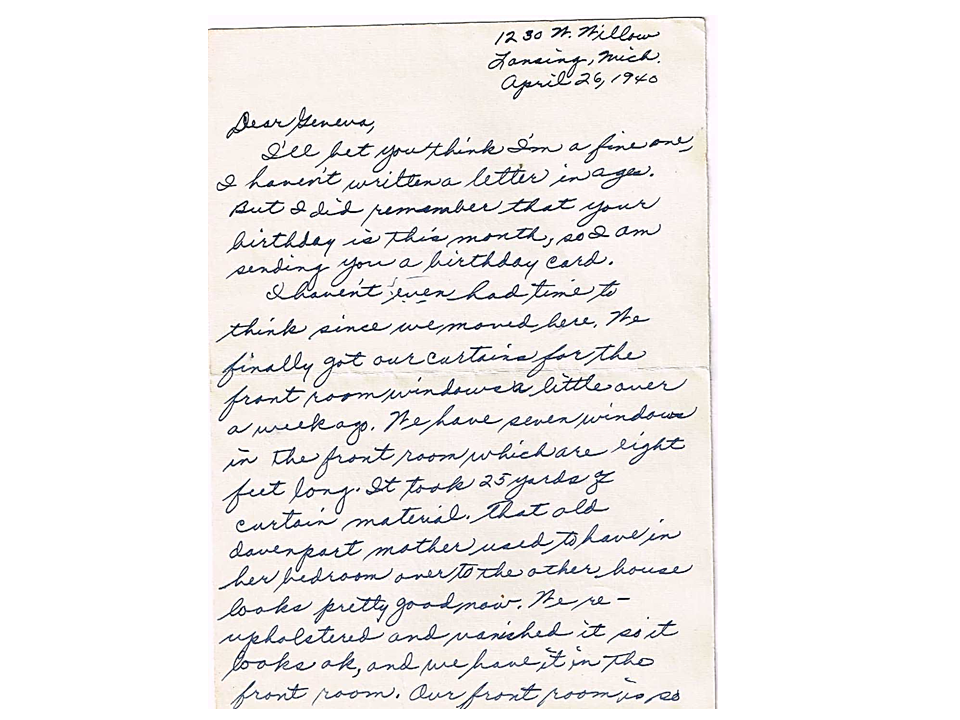 1230 W. Willow
Lansing, Mich.
April 26, 1940
Dear Geneva,
I'll bet you think I'm a fine one,
I haven't written a letter in ages.
But I did remember that your
birthday is this month, so I am
sending you a birthday card.
I haven't even had time to
think since we moved here. We
finally got our curtains for the
front room windows a little over
a week ago. We have seven windows
in the front room which are eight
feet long. It took 25 yards of
curtain material. That old
davenport mother used to have in
her bedroom over to the other house
looks pretty good now. We re-
upholstered and vanished it so it
looks ok, and we have it in the
front room. Our front room is so